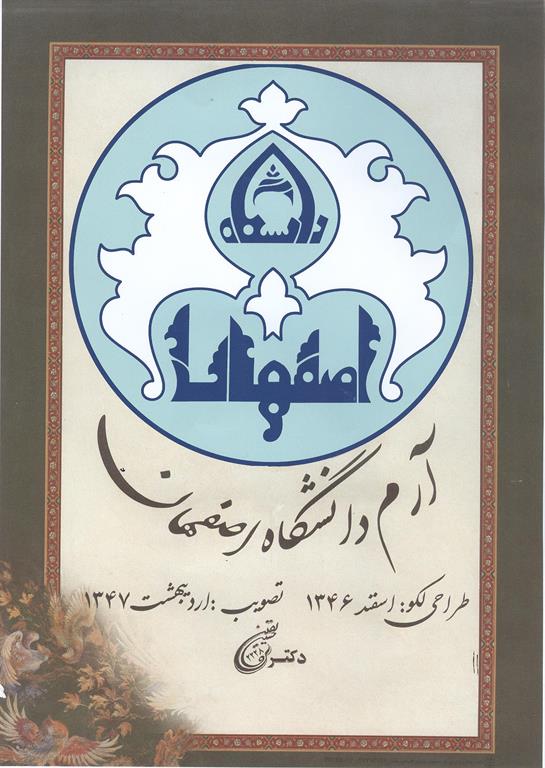 دانشگاه
اصفهان
آرم دانشگاه اصفهان
طراحی لگو: اسفند ۱۳۴۶ تصویب: اردیبهشت ۱۳۴۷
دکتر